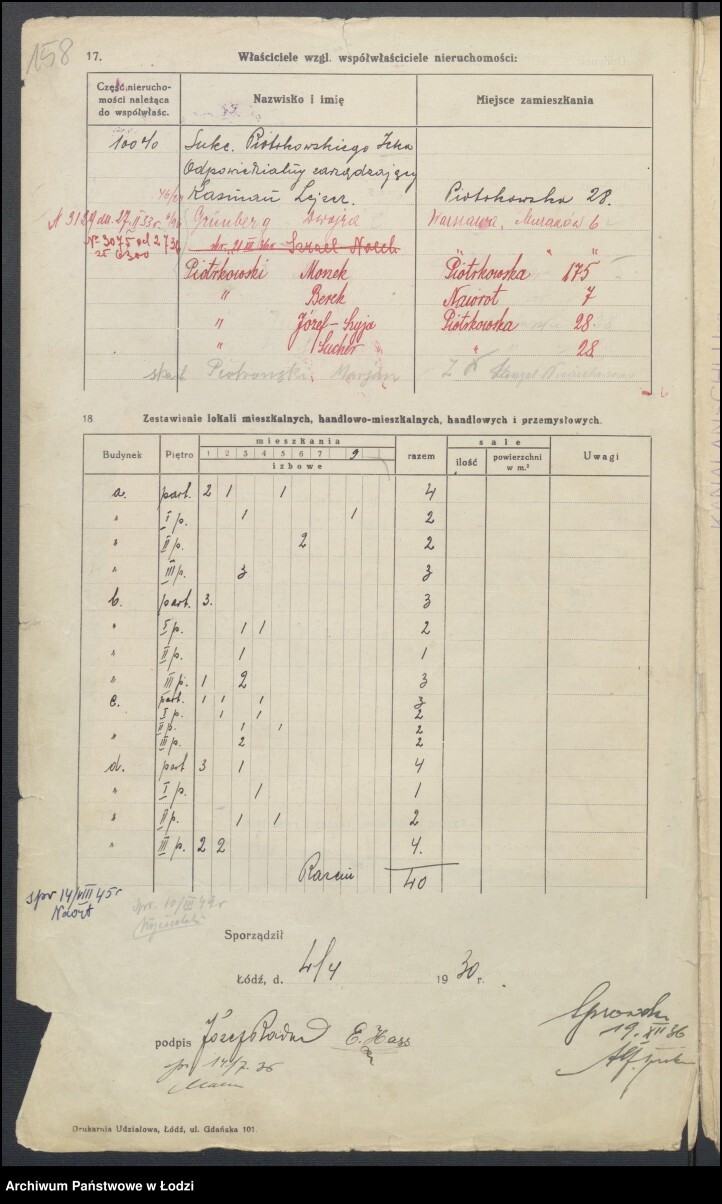 158
17. Właściciele wzgl. współwłaściciele nieruchomości:
Część nierucho-
mości należąca
do współwłaśc.
Nazwisko i imię
Miejsce zamieszkania
100% Sukc. Piotrkowskiego Icka
Odpowiedzialny zarządzający
Kasman Lejzer. Piotrkowska 28.
Grünberg Dwojra Warszawa, Muranów 6
Nº 3075 Szrael Noech
Piotrkowski Monek Piotrkowska 175
" Berek Nawrot 7
" Józef-Szyja Piotrkowska 28.
" Sucher " 28
Marjan
18. Zestawienie lokali mieszkalnych, handlowo-mieszkalnych, handlowych i przemysłowych.
Budynek Piętro mieszkania razem sale Uwagi
1 2 3 4 5 6 7 9
izbowe
ilość powierzchni
w m.²
a. part. 2 1 1 4
" I p. 1 1 2
" II p. 2 2
" III p. 3 3
b. part. 3. 3
" I p. 1 1 2
" II p. 1 1
" III p. 1 2 3
c. part. 1 1 1 3
I p. 1 1 2
II p. 1 1 2
" III p. 2 2
d. part 3 1 4
" I p. 1 1
" II p. 1 1 2
" III p. 2 2 4.
Razem 40
spr 14/VIII 45 r
Sporządził
Łódź, d. 4/4 1930 r.
podpis E. Hass
19. XII 36
14/7. 36
Drukarnia Udziałowa, Łódź, ul. Gdańska 101.
Archiwum Państwowe w Łodzi